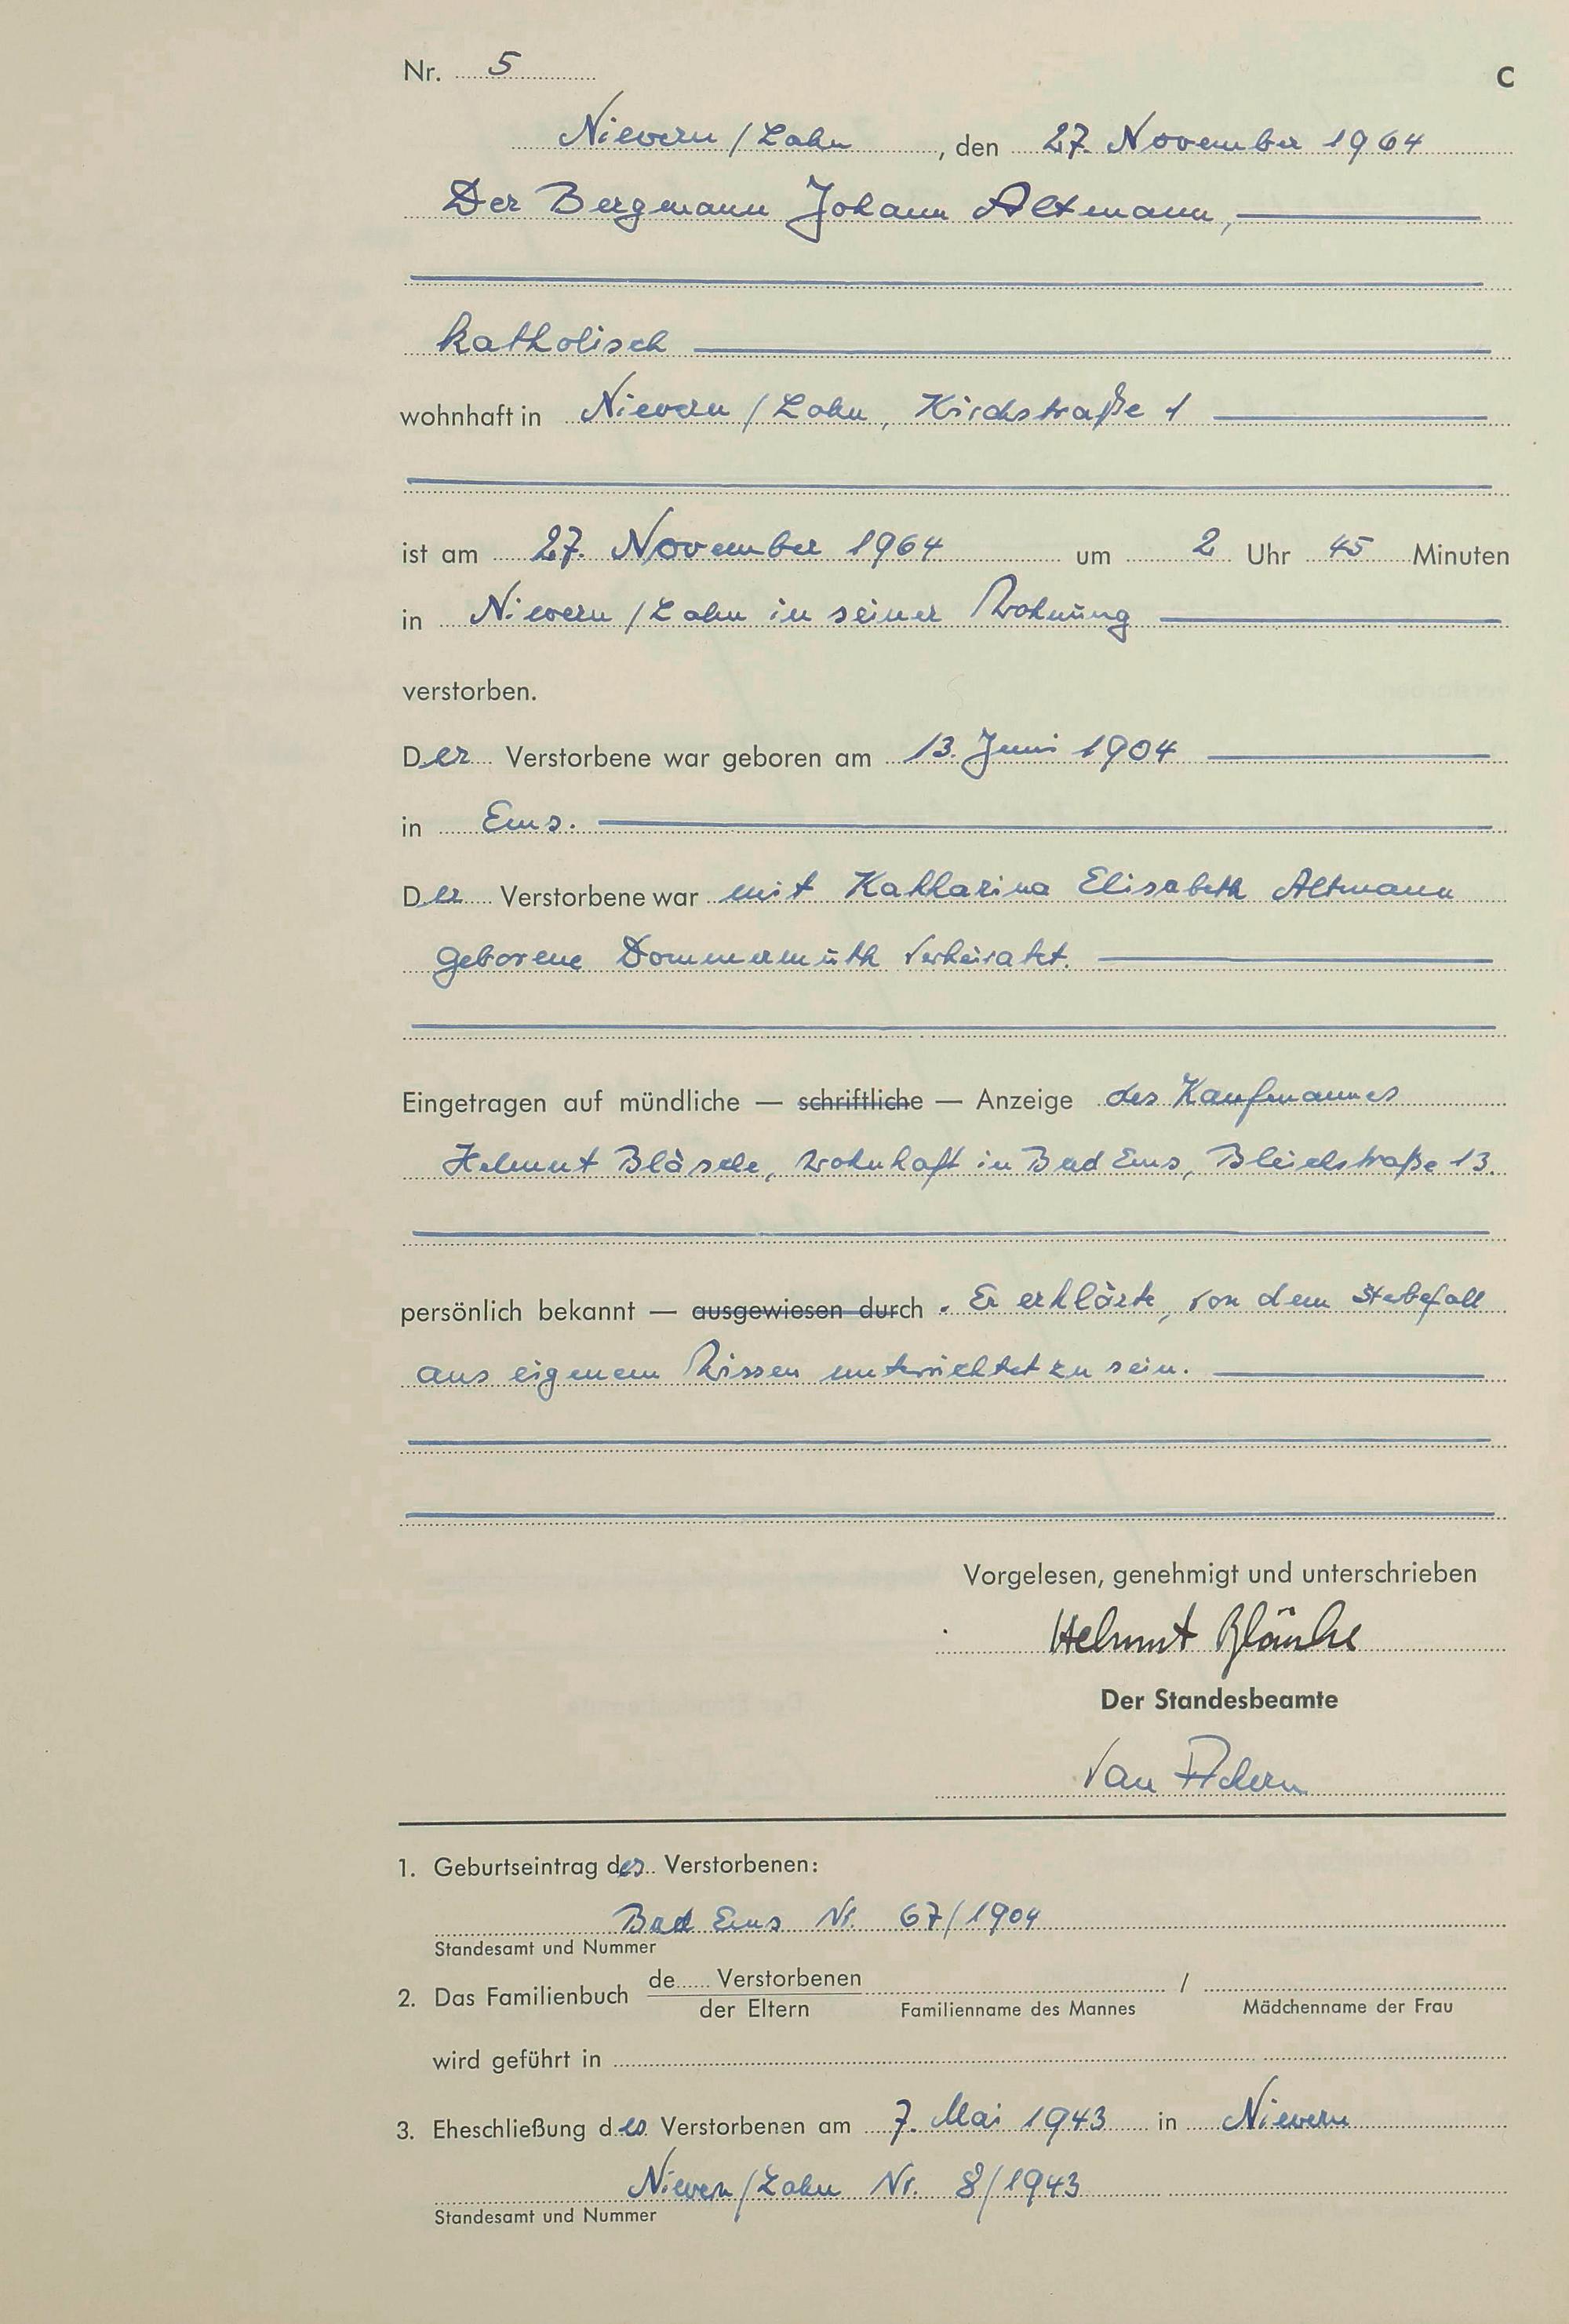 Nr. 5 C
Nievern / Lahn, den 27. November 1964
Der Bergmann Johann Altmann,
katholisch
wohnhaft in Nievern / Lahn, Kirchstraße 1
ist am 27. November 1964 um 2 Uhr 45 Minuten
in Nievern / Lahn in seiner Wohnung
verstorben.
Der Verstorbene war geboren am 13. Juni 1904
in Ems.
Der Verstorbene war mit Katharina Elisabeth Altmann
geborene Dommermuth verheiratet.
Eingetragen auf mündliche — schriftliche — Anzeige des Kaufmannes
Helmut wohnhaft in Bad Ems, Bleichstraße 13.
persönlich bekannt — ausgewiesen durch . Er erklärte, von dem Sterbefall
aus eigenem Wissen unterrichtet zu sein.
Vorgelesen, genehmigt und unterschrieben
Helmut
Der Standesbeamte
Van
1. Geburtseintrag des Verstorbenen:
Bad Ems Nr. 67/1904
Standesamt und Nummer
2. Das Familienbuch de Verstorbenen /
der Eltern Familienname des Mannes Mädchenname der Frau
wird geführt in
3. Eheschließung des Verstorbenen am 7. Mai 1943 in Nievern
Nievern / Lahn Nr. 8/1943
Standesamt und Nummer